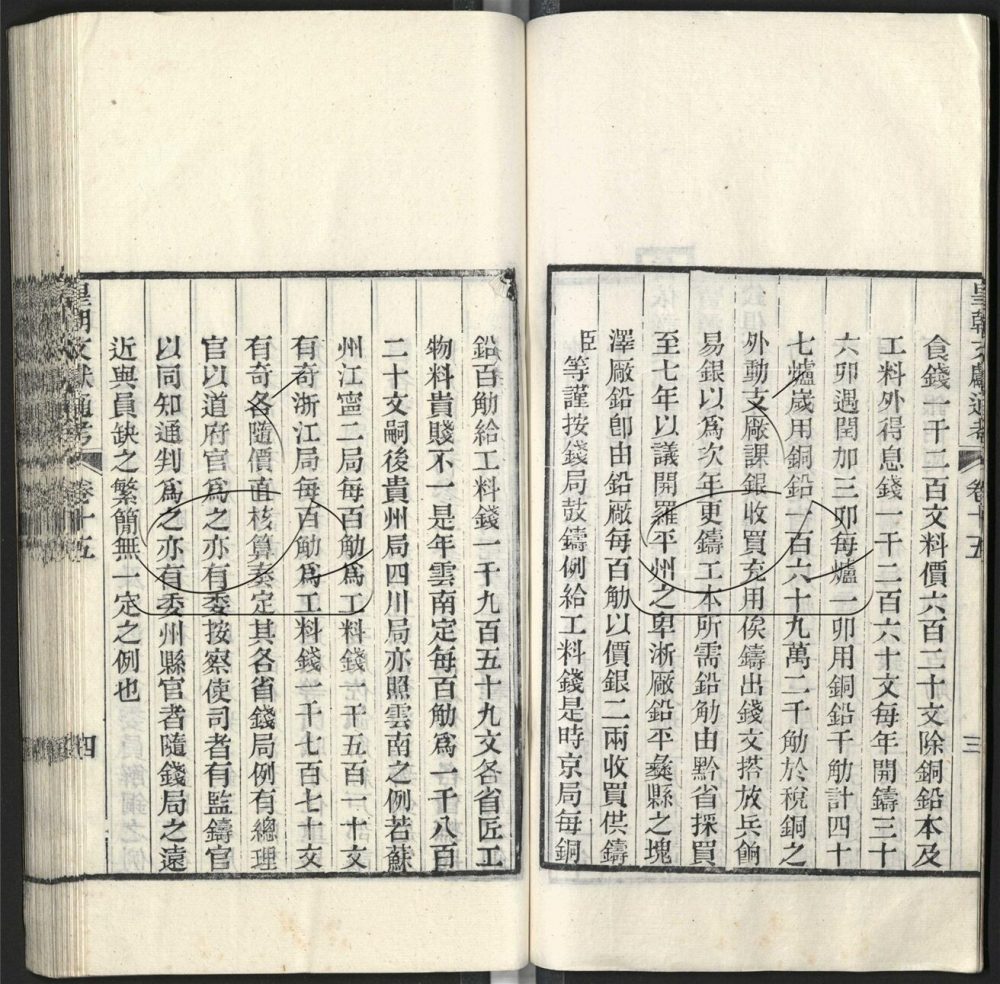 皇朝文獻通考 卷十五 三
食錢一千二百文料價六百二十文除銅鉛本及
工料外得息錢一千二百六十文每年開鑄三十
六卯遇閏加三卯每爐一卯用銅鉛千觔計四十
七爐歲用銅鉛一百六十九萬二千觔於稅銅之
外動支厰課銀收買充用俟鑄出錢文搭放兵餉
易銀以爲次年更鑄工本所需鉛觔由黔省採買
至七年以議開羅平州之卑淅厰鉛平彞縣之塊
澤厰鉛卽由鉛厰每百觔以價銀二兩收買供鑄
臣等謹按錢局鼓鑄例給工料錢是時京局每銅
鉛百觔給工料錢一千九百五十九文各省匠工
物料貴賤不一是年雲南定每百觔爲一千八百
二十文嗣後貴州局四川局亦照雲南之例若蘇
州江寧二局每百觔爲工料錢一千五百一十文
有奇浙江局每百觔爲工料錢一千七百七十文
有奇各隨價直核算奏定其各省錢局例有總理
官以道府官爲之亦有委按察使司者有監鑄官
以同知通判爲之亦有委州縣官者隨錢局之遠
近與員缺之繁簡無一定之例也
皇朝文獻通考 卷十五 四